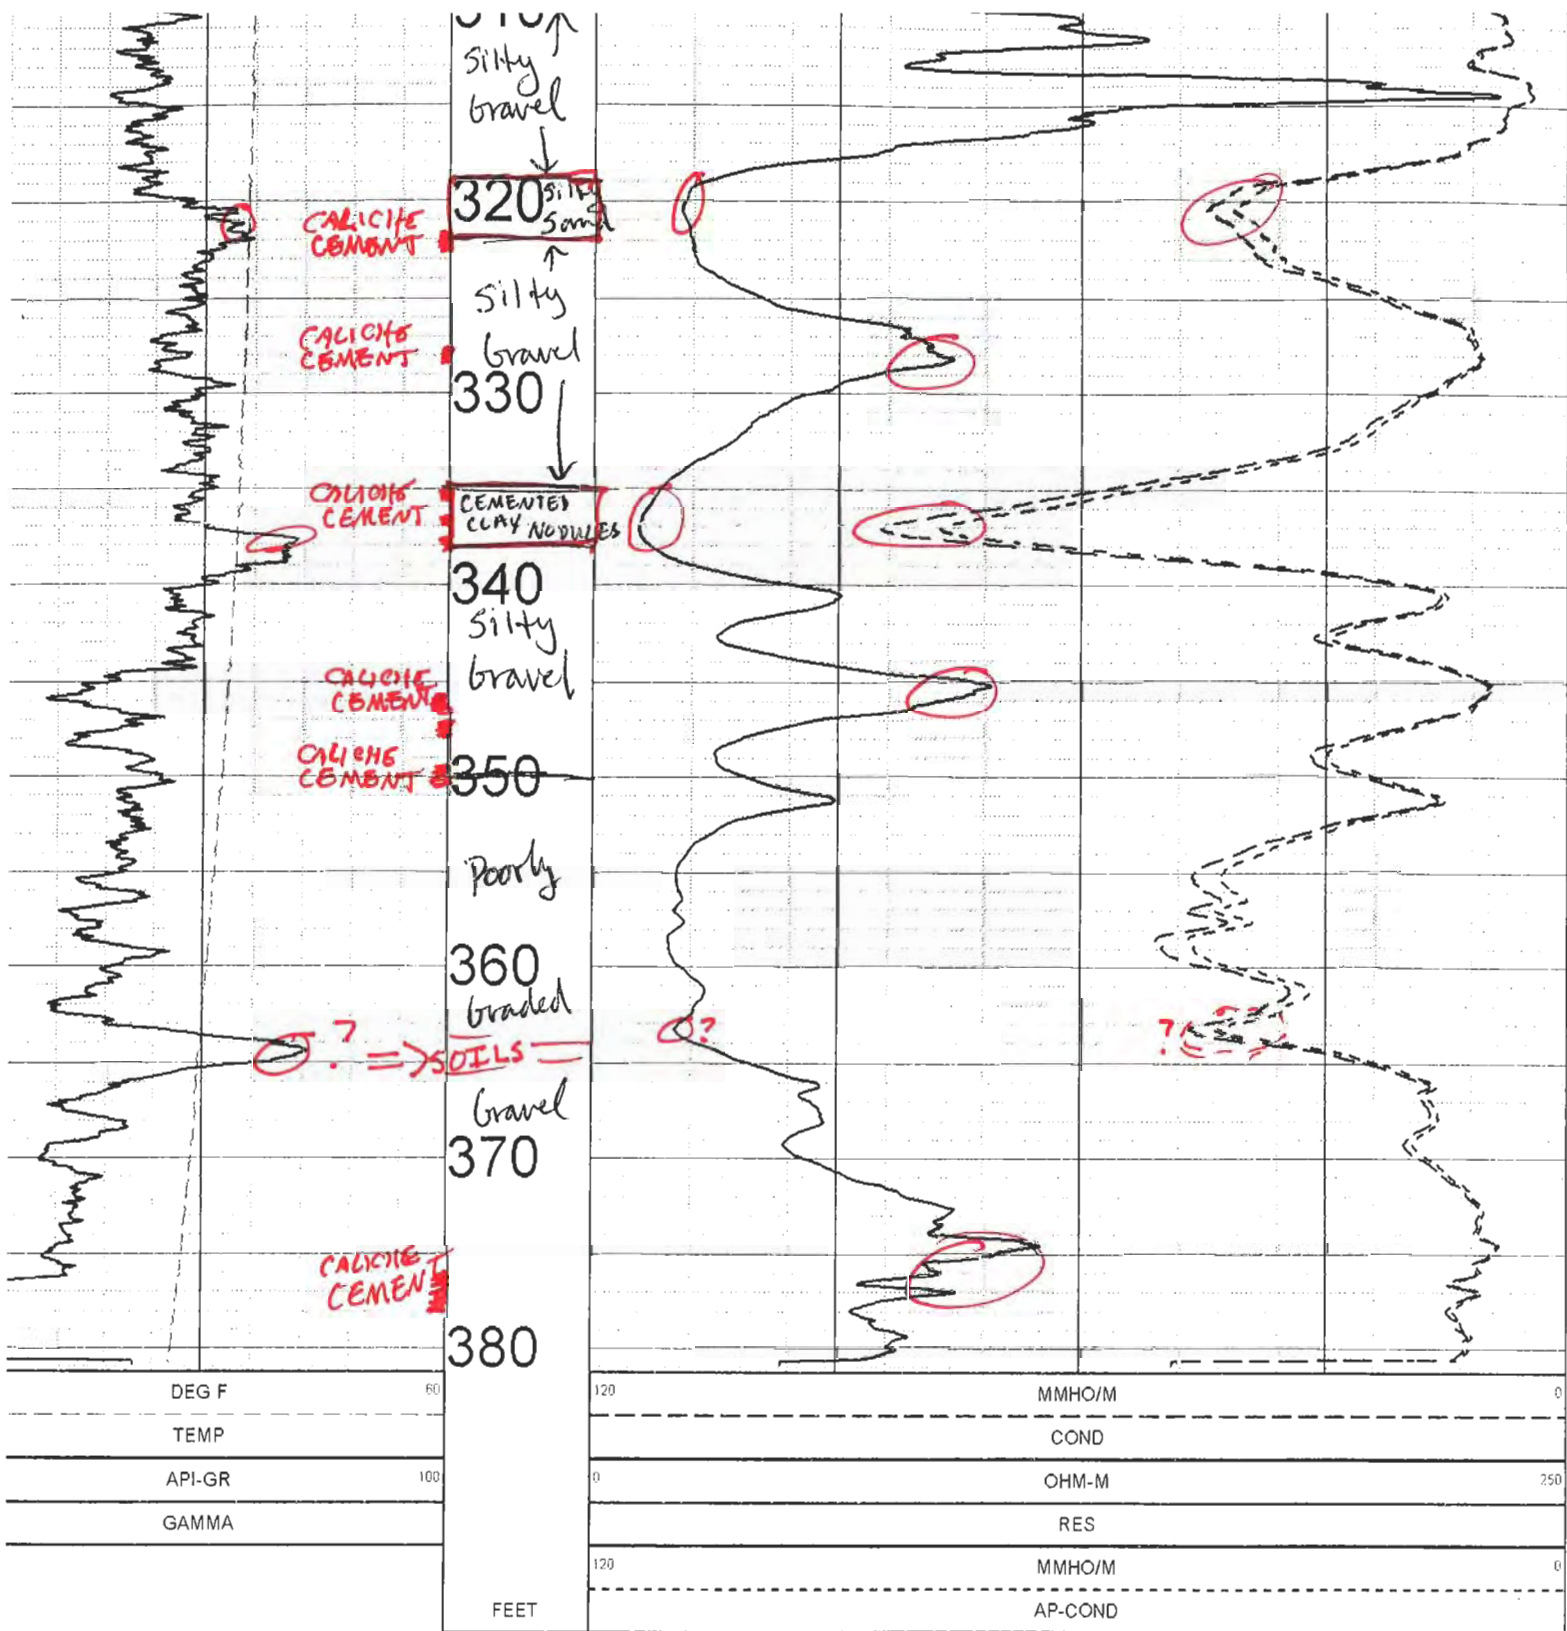 310
Silty
Gravel
320 Silty
Sand
CALICHE
CEMENT
Silty
Gravel
CALICHE
CEMENT
330
CALICHE
CEMENT
CEMENTED
CLAY NODULES
340
Silty
Gravel
CALICHE
CEMENT
CALICHE
CEMENT
350
Poorly
360
Graded
? => SOILS
?
?
Gravel
370
CALICHE
CEMENT
380
DEG F 60 120 MMHO/M 0
TEMP COND
API-GR 100 0 OHM-M 250
GAMMA RES
120 MMHO/M 0
FEET AP-COND